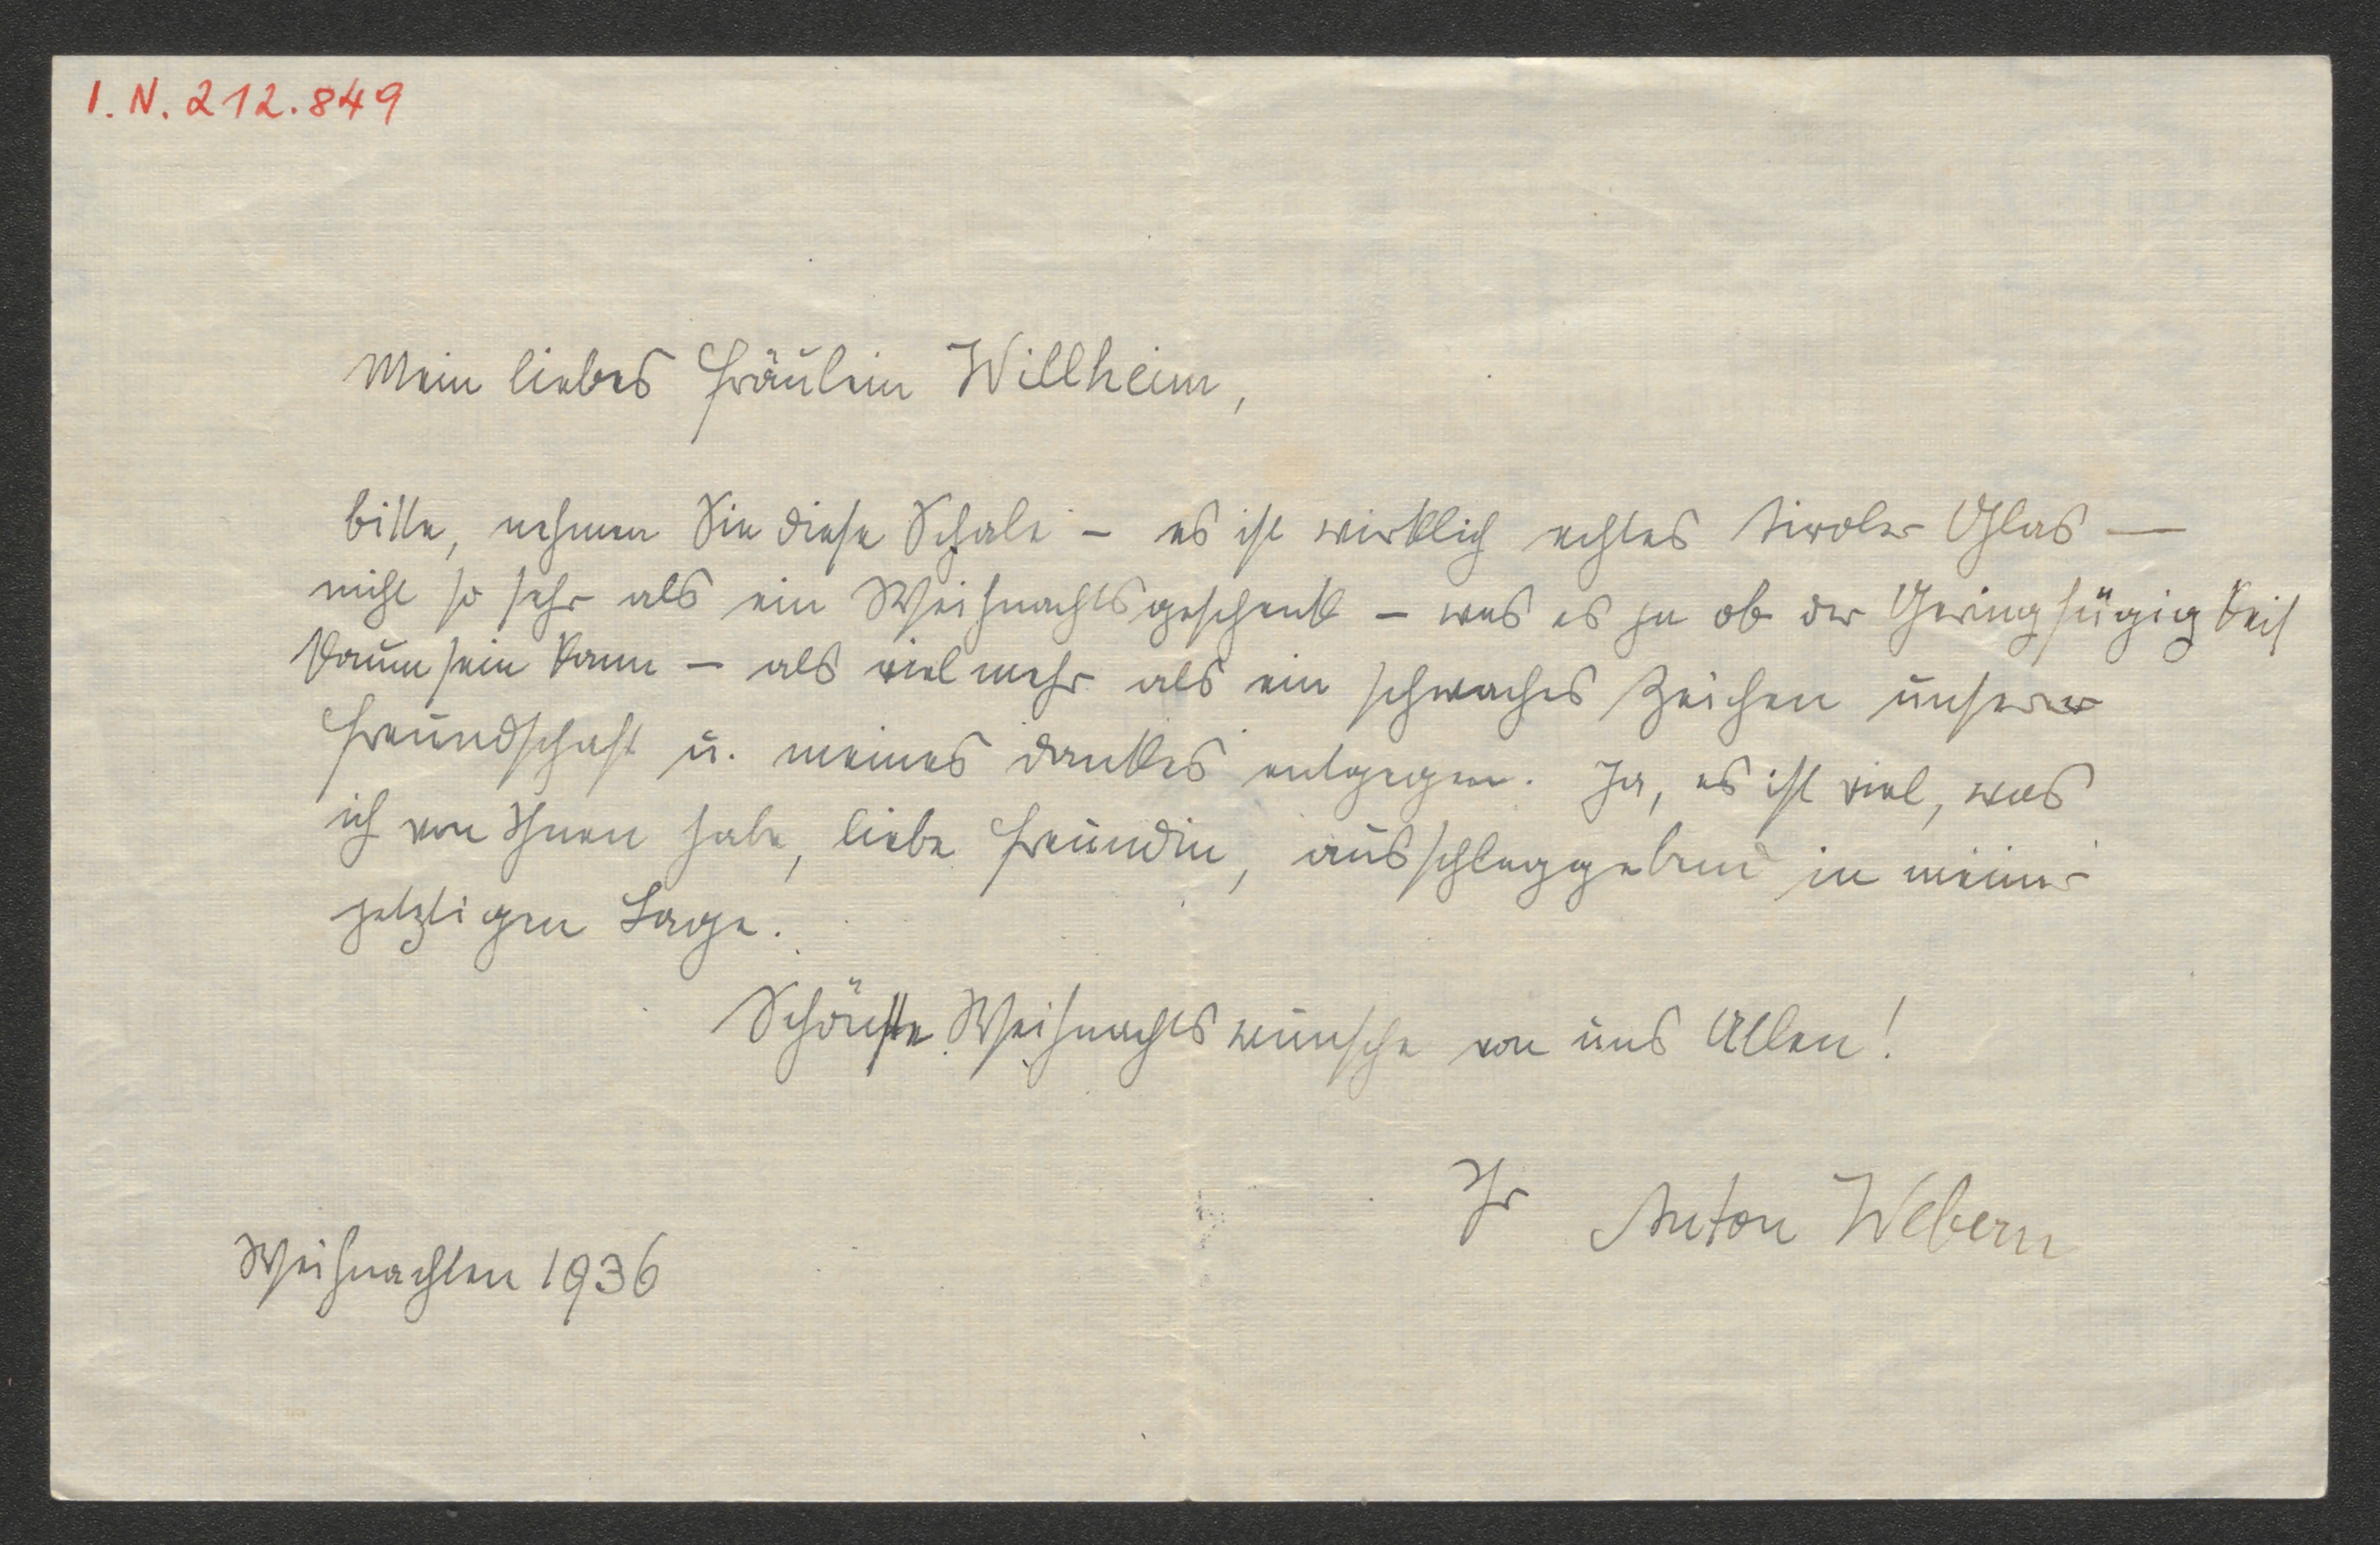 I.N. 212.849
Mein liebes Fräulein Willheim,
bitte, nehmen Sie diese Schale – es ist wirklich echtes Tiroler Glas –
nicht so sehr als ein Weihnachtsgeschenk – was es ja ob der Geringfügigkeit
kaum sein kann – als vielmehr als ein schwaches Zeichen unserer
Freundschaft u. meines Dankes entgegen. Ja, es ist viel, was
ich von Ihnen habe, liebe Freundin, ausschlaggebend in meiner
jetztigen Lage.
Schönste Weihnachtswünsche von uns Allen!
Ihr Anton Webern
Weihnachten 1936